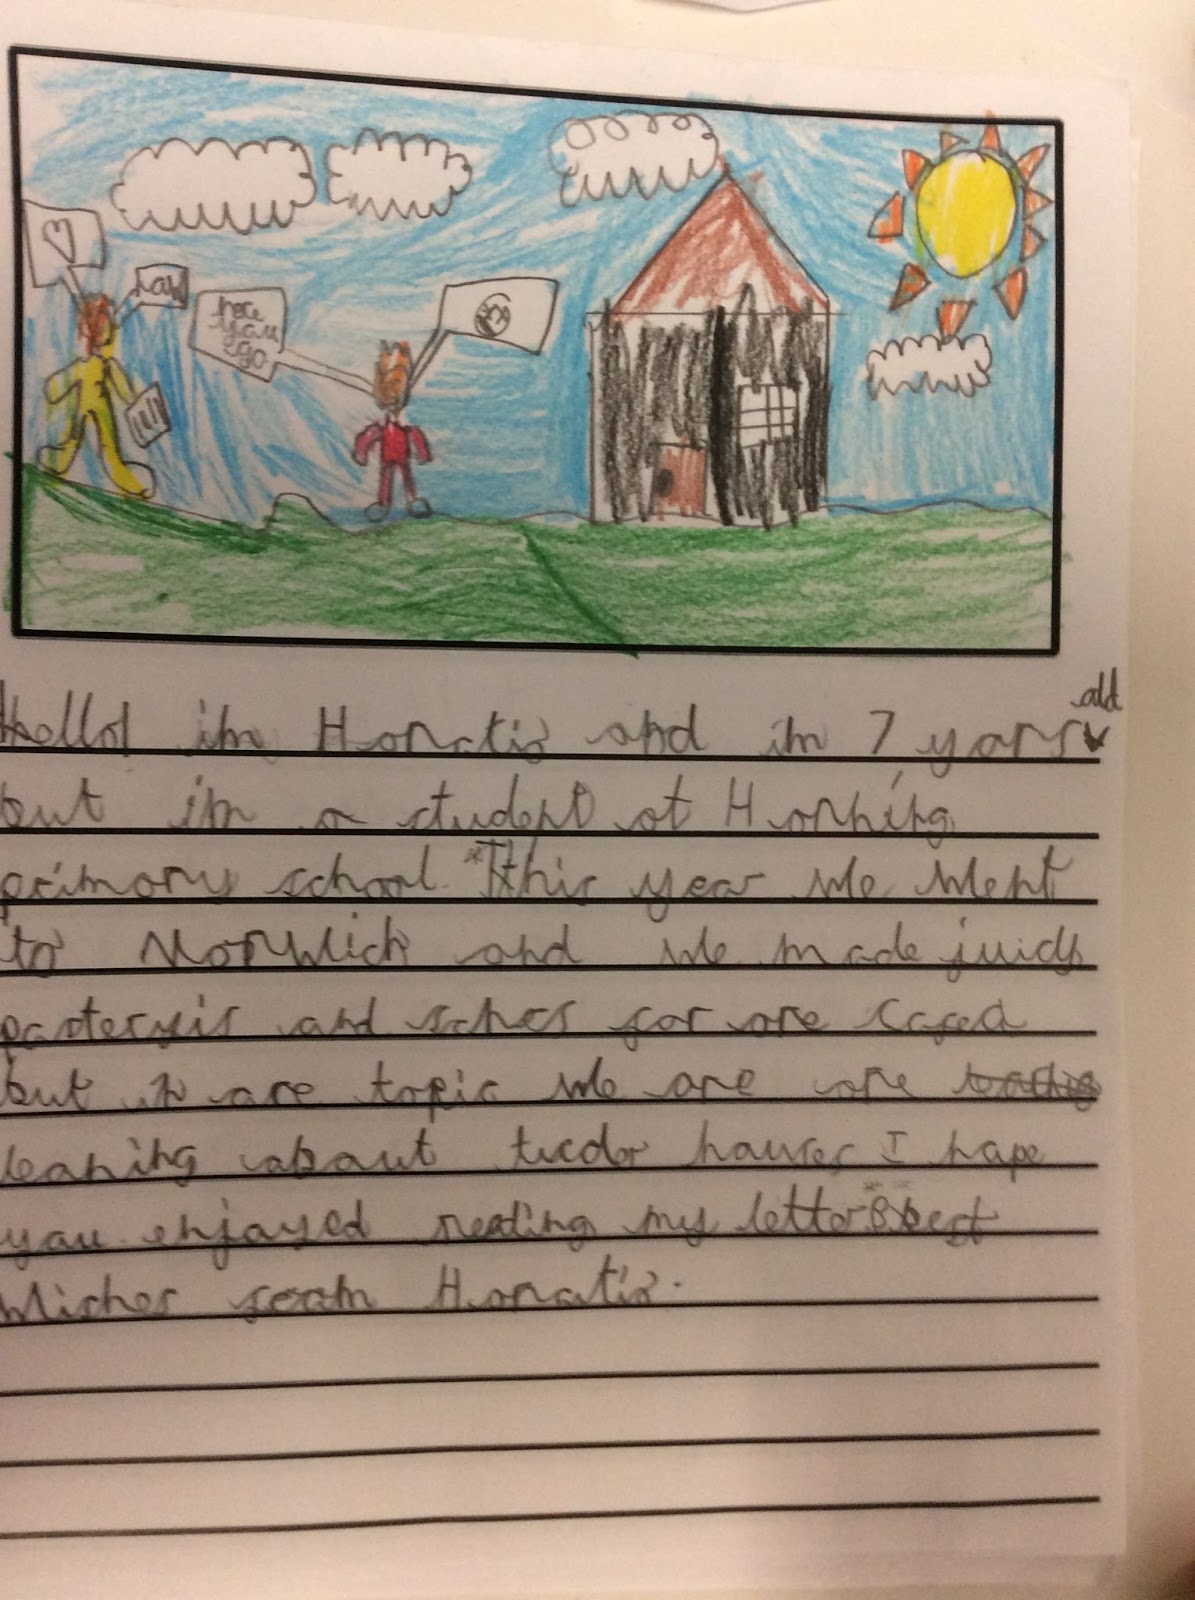 here
you
go
old
Hello im Horatio and im 7 years
but im a student at Horning
primary school. This year we went
to Norwich and we made
and for are
but in are topic we are are
leaning about tudor houses I hope
you enjoyed reading my letter best
wishes from Horatio.